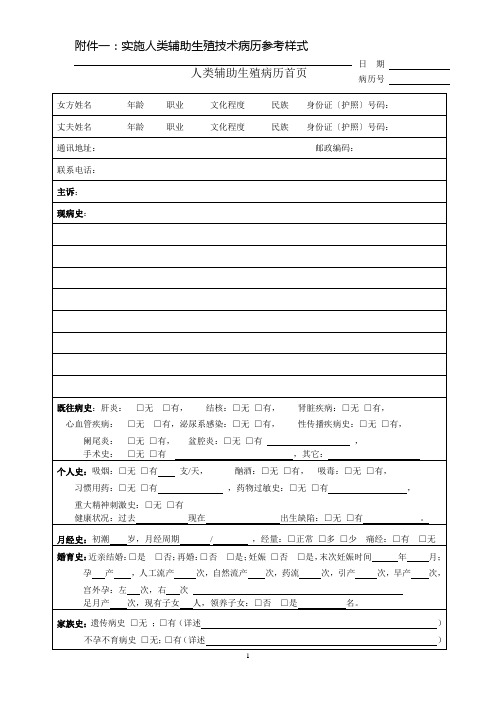 附件一：实施人类辅助生殖技术病历参考样式
日 期
人类辅助生殖病历首页
病历号
女方姓名 年龄 职业 文化程度 民族 身份证〔护照〕号码：
丈夫姓名 年龄 职业 文化程度 民族 身份证〔护照〕号码：
通讯地址： 邮政编码：
联系电话：
主诉：
现病史：
既往病史：肝炎： □无 □有， 结核：□无 □有， 肾脏疾病：□无 □有，
心血管疾病： □无 □有，泌尿系感染：□无 □有， 性传播疾病史：□无 □有，
阑尾炎： □无 □有， 盆腔炎：□无 □有 ，
手术史： □无 □有 ，其它：
个人史：吸烟：□无 □有 支/天， 酗酒：□无 □有， 吸毒：□无 □有，
习惯用药：□无 □有 ，药物过敏史：□无 □有 ，
重大精神刺激史：□无 □有
健康状况：过去 现在 出生缺陷：□无 □有 。
月经史：初潮 岁，月经周期 / ，经量：□正常 □多 □少 痛经：□有 □无
婚育史：近亲结婚：□是 □否；再婚：□否 □是；妊娠 □否 □是，末次妊娠时间 年 月；
孕 产 ，人工流产 次，自然流产 次，药流 次，引产 次，早产 次，
宫外孕：左 次，右 次
足月产 次，现有子女 人，领养子女：□否 □是 名。
家族史：遗传病史 □无 ；□有（详述 ）
不孕不育病史 □无；□有（详述 ）
1